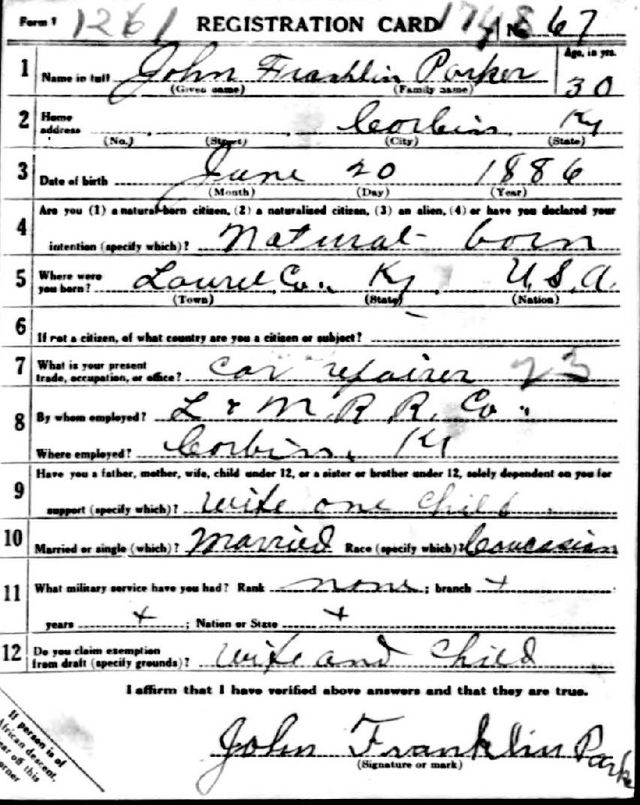 Form 1 1261 REGISTRATION CARD No. 67
1 Name in full John Franklin Parker Age, in yrs. 30
(Given name) (Family name)
2 Home address Corbin Ky
(No.) (Street) (City) (State)
3 Date of birth June 20 1886
(Month) (Day) (Year)
4 Are you (1) a natural-born citizen, (2) a naturalized citizen, (3) an alien, (4) or have you declared your
intention (specify which)? Natural born
5 Where were you born? Laurel Co., Ky U.S.A.
(Town) (State) (Nation)
6 If not a citizen, of what country are you a citizen or subject? -
7 What is your present trade, occupation, or office? Car repairer 23
8 By whom employed? L & N. R R. Co.
Where employed? Corbin, Ky
9 Have you a father, mother, wife, child under 12, or a sister or brother under 12, solely dependent on you for
support (specify which)? Wife one child
10 Married or single (which)? Married Race (specify which)? Caucasian
11 What military service have you had? Rank none ; branch +
years + ; Nation or State +
12 Do you claim exemption from draft (specify grounds)? Wife and Child
I affirm that I have verified above answers and that they are true.
John Franklin Park
(Signature or mark)
If person is of
African descent,
tear off this
corner